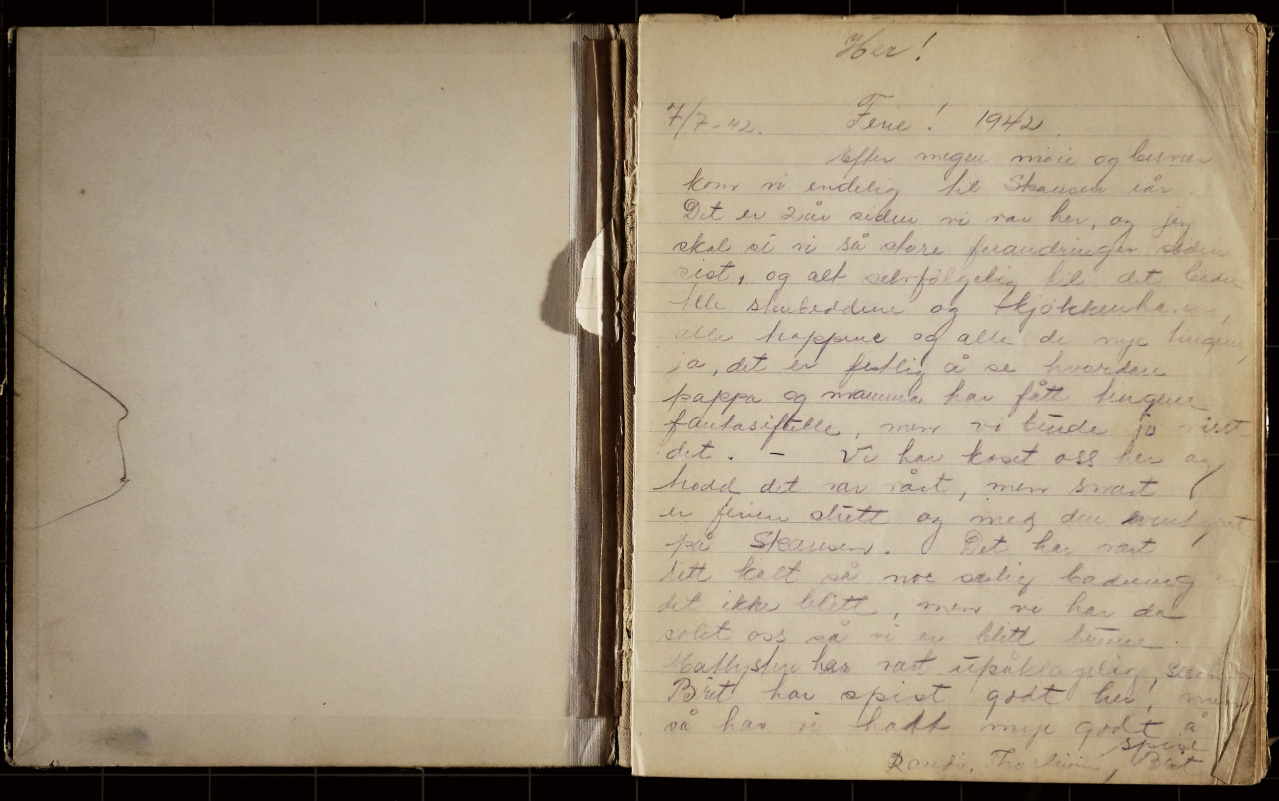 Her!
7/7-42. Ferie! 1942.
Efter megen møie og besvær
kom vi endelig til Skansen iår.
Det er 2 år siden vi var her, og jeg
skal si vi så store forandringer siden
sist, og alt selvfølgelig til det bedre
Alle stenbeddene og kjøkkenhaven,
alle trappene og alle de nye tingene,
ja, det er festlig å se hvordan
pappa og mamma har fått tingene
fantasifulle, men vi bude jo visst
det. - Vi har koset oss her og
hadd det rart, men snart
er ferien slutt og med den eventyret
på Skansen. Det har vært
litt kalt så noe særlig badning
det ikke blitt, men vi har da
solet oss så vi er blitt brune.
Matlysten har vært upåklagelig, selv
Brit har spist godt her! men
så har vi hadt mye godt å
spise
Randi, Thorleiv, Brit